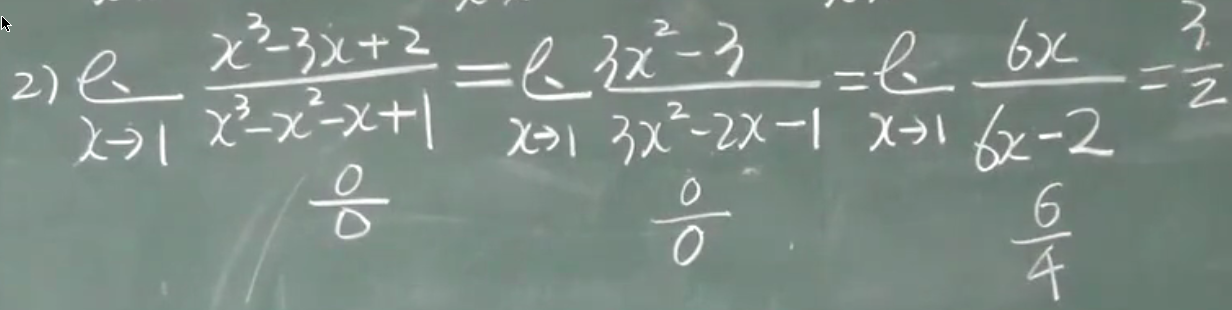 2) lim x→1 (x³-3x+2)/(x³-x²-x+1) = lim x→1 (3x²-3)/(3x²-2x-1) = lim x→1 6x/(6x-2) = 3/2
0/0 0/0 6/4